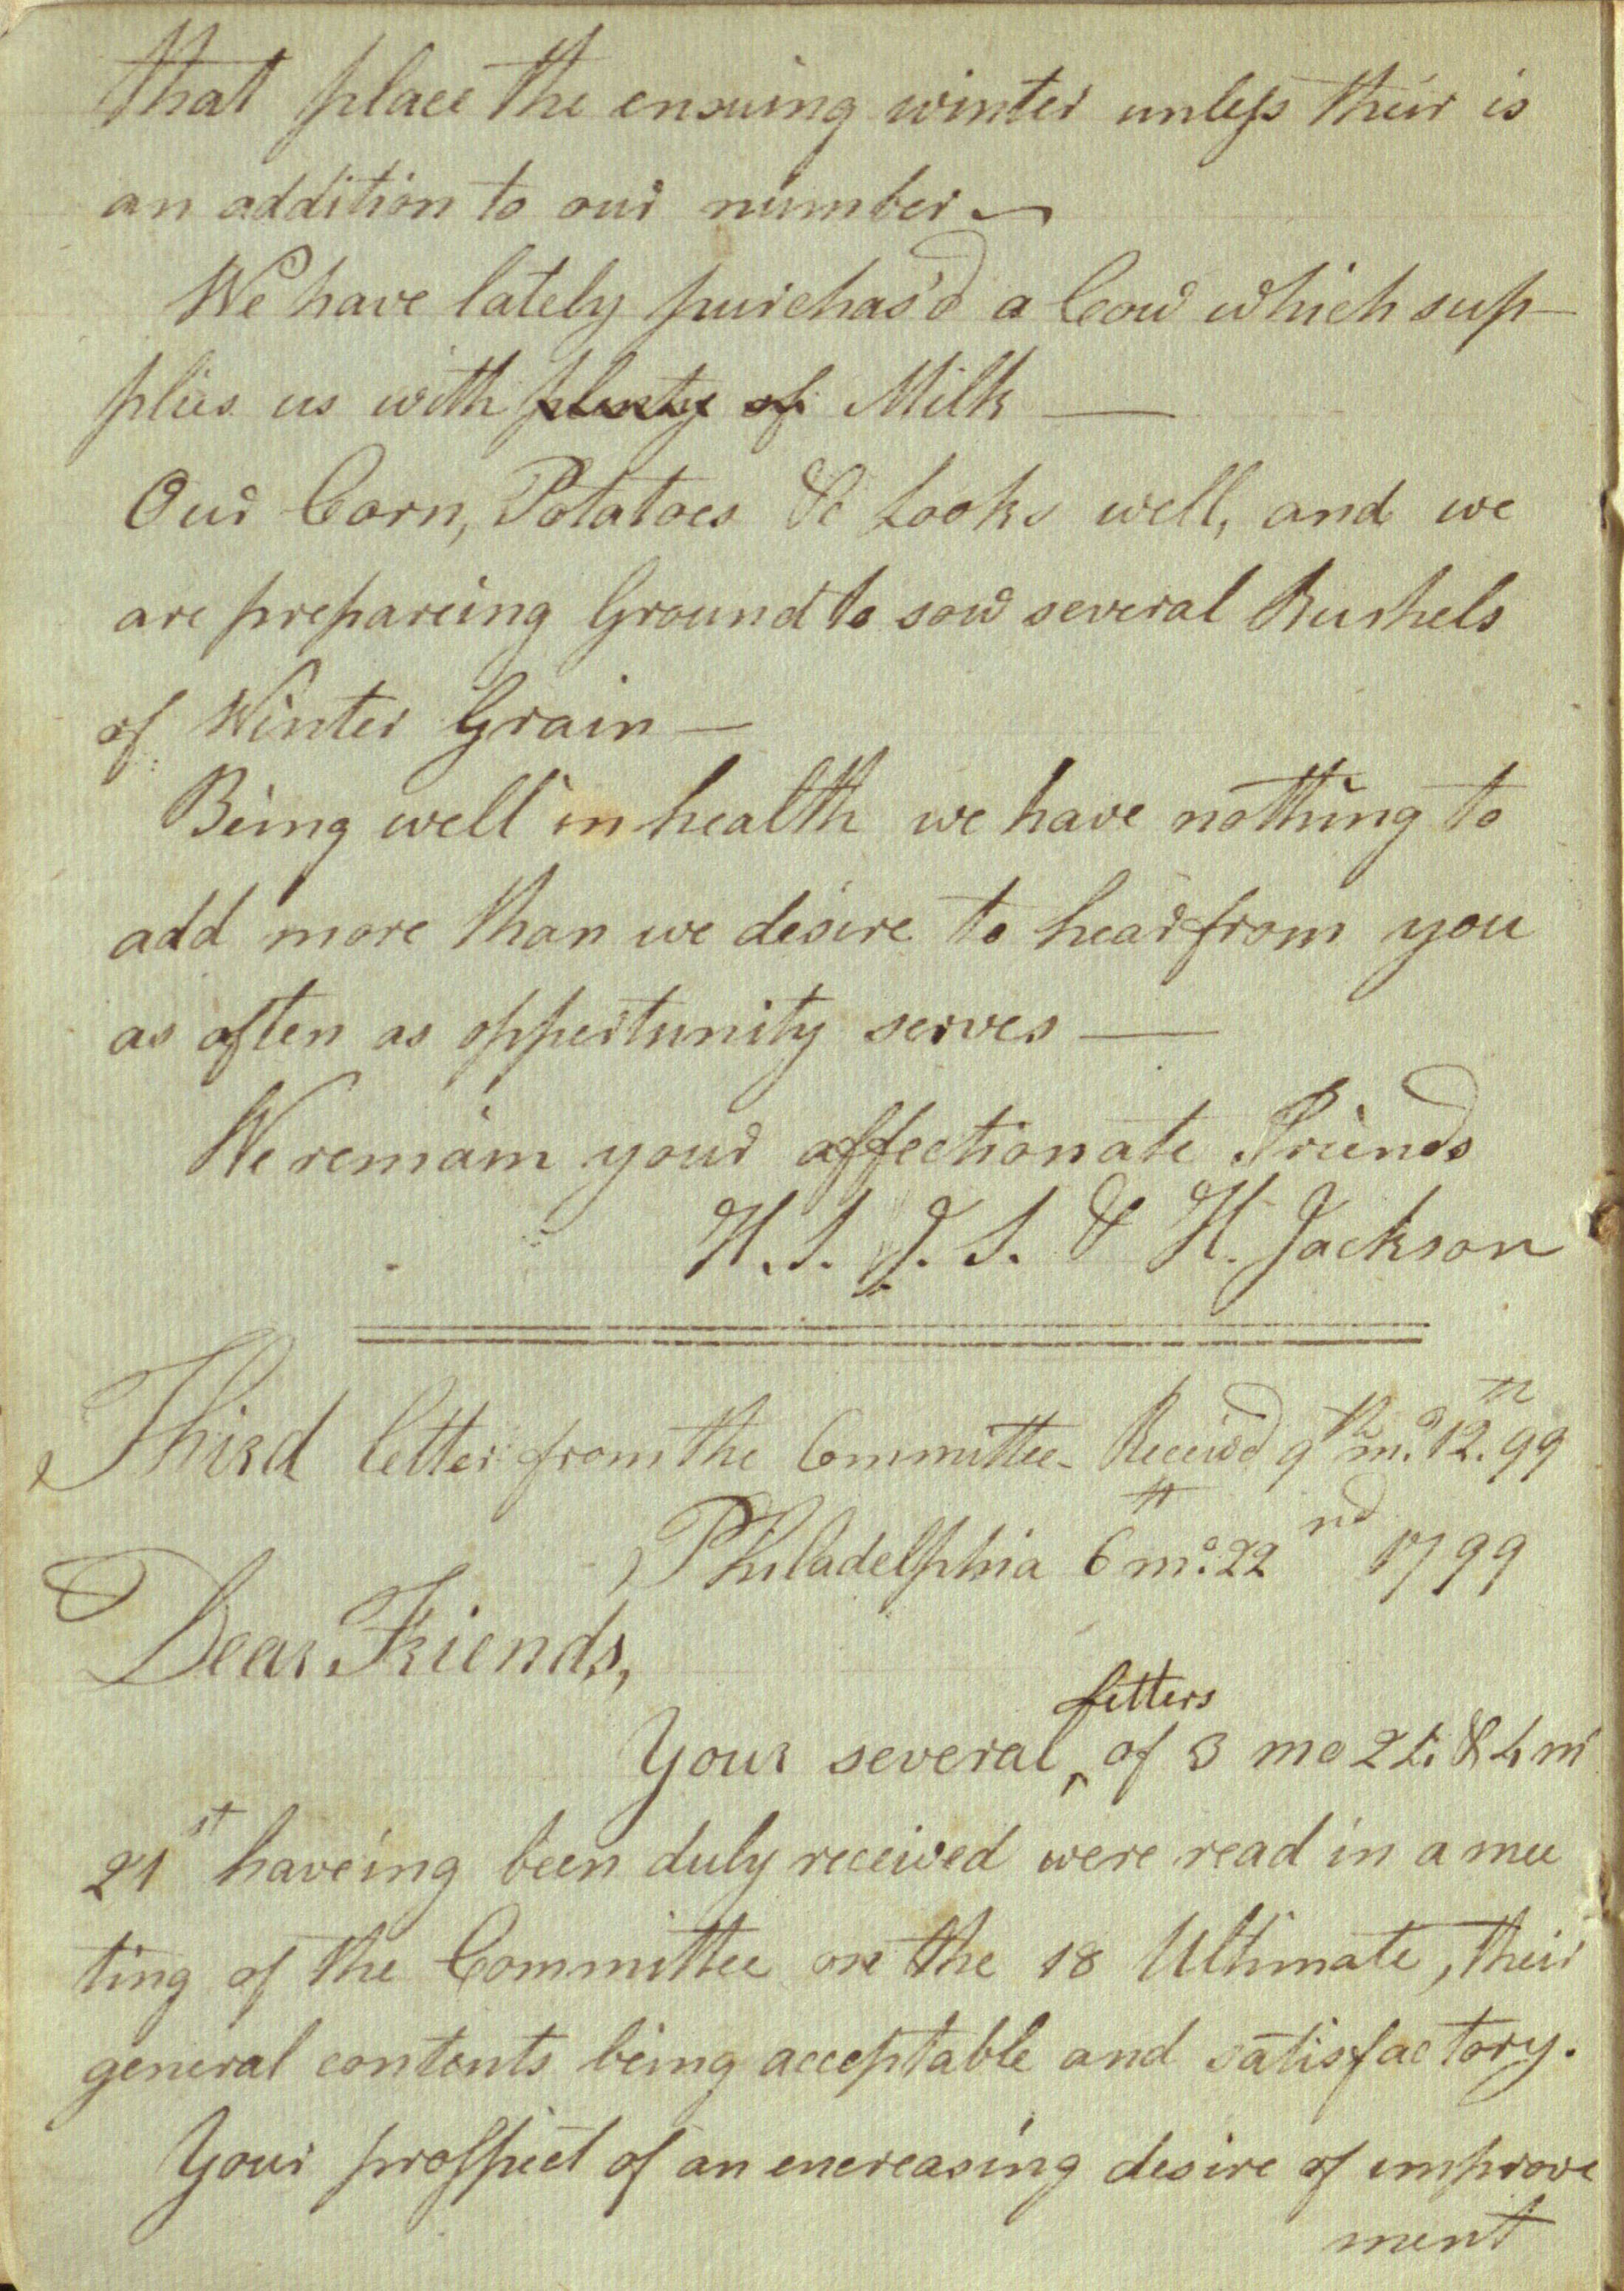 that place the ensuing winter unless their is
an addition to our number
We have lately purchas'd a Cow which sup-
plies us with plenty of Milk —
Our Corn, Potatoes &c Looks well, and we
are prepareing Ground to sow several Bushels
of Winter Grain —
Being well in health we have nothing to
add more than we desire to hear from you
as often as oppertunity serves —
We remain your affectionate Friends
H. S. J. S. & H. Jackson
Third letter from the Committee - Receivd 9th mo. 12th. 99
Philadelphia 6th mo. 22nd 1799
Dear Friends,
letters
Your several ‸ of 3 mo 24. & 4 mo
21st haveing been duly received were read in a mee
ting of the Committee on the 18 Ultimate, their
general contents being acceptable and satisfactory.
Your prosspect of an encreasing desire of improve
ment